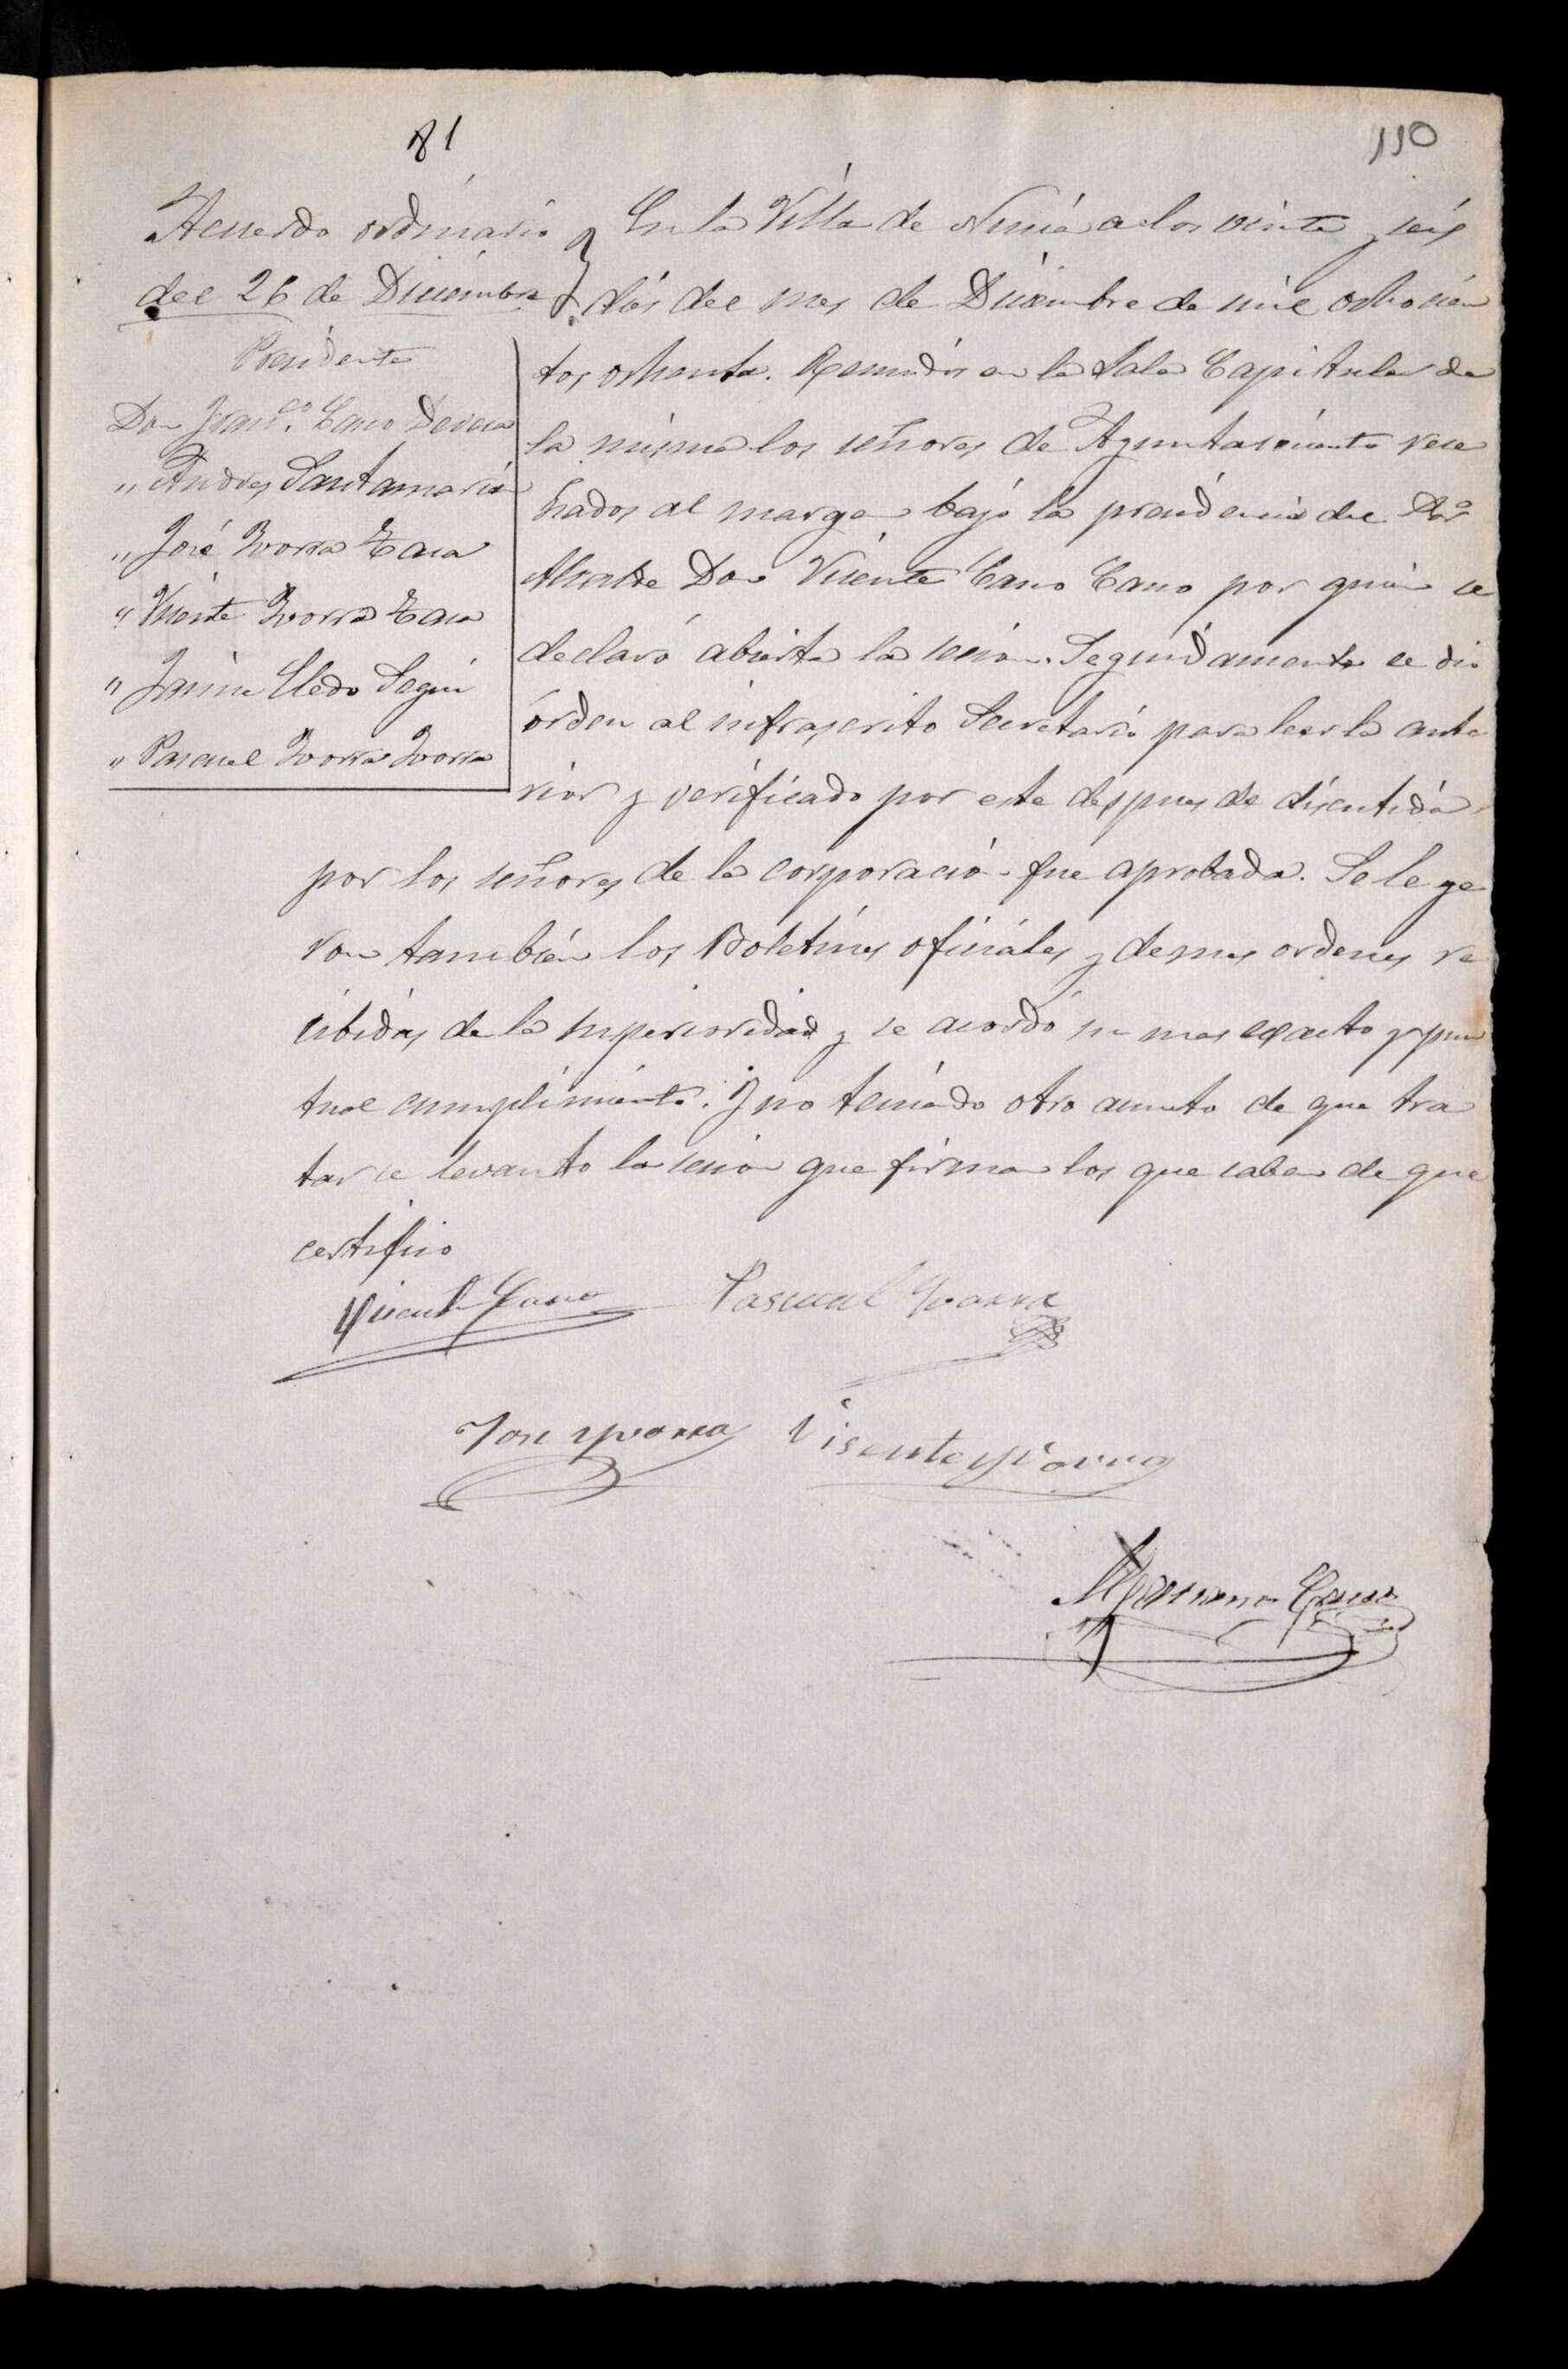 81
110
Acuerdo ordinario
del 26 de Diciembre
Presidente
Don Franco. Cano Devesa
" Andres Santamaria
" José Yvorra
" Vicente Yvorra
" Jaime Lledo Segui
" Pascual Yvorra Yvorra
En la Villa de Nucia a los veinte y seis
dias del mes de Diciembre de mil ochocien
tos ochenta. Reunidos en la Sala Capitular de
la misma los señores de Ayuntamiento rese
ñados al margen bajo la presidencia del Sor
Alcalde Don Vicente Cano Cano por quien se
declaró abierta la sesion. Seguidamente se dio
órden al infrascrito Secretario para leer la ante
rior y verificado por este despues de discutida
por los señores de la corporacion fue aprobada. Se leye
ron tambien los Boletines oficiales y demas ordenes re
cibidas de la superioridad y se acordó su mas exacto y pun
tual cumplimiento. Y no teniendo otro asunto de que tra
tar se levanto la sesion que firman los que saben de que
certifico
Vicente Cano Pascual Yvorra
Jose Yvorra Visente Yvorra
Cano